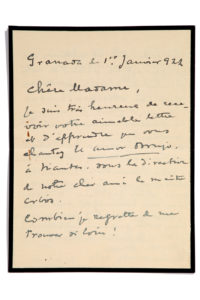 Granada le 1er Janvier 924
Chère Madame,
Je suis très heureux de rece-
voir votre aimable lettre
et d'apprendre que vous
chantez le amor brujo,
à Nantes, sous la direction
de notre cher ami le maître
Arbos.
Combien je regrette de me
trouver si loin!